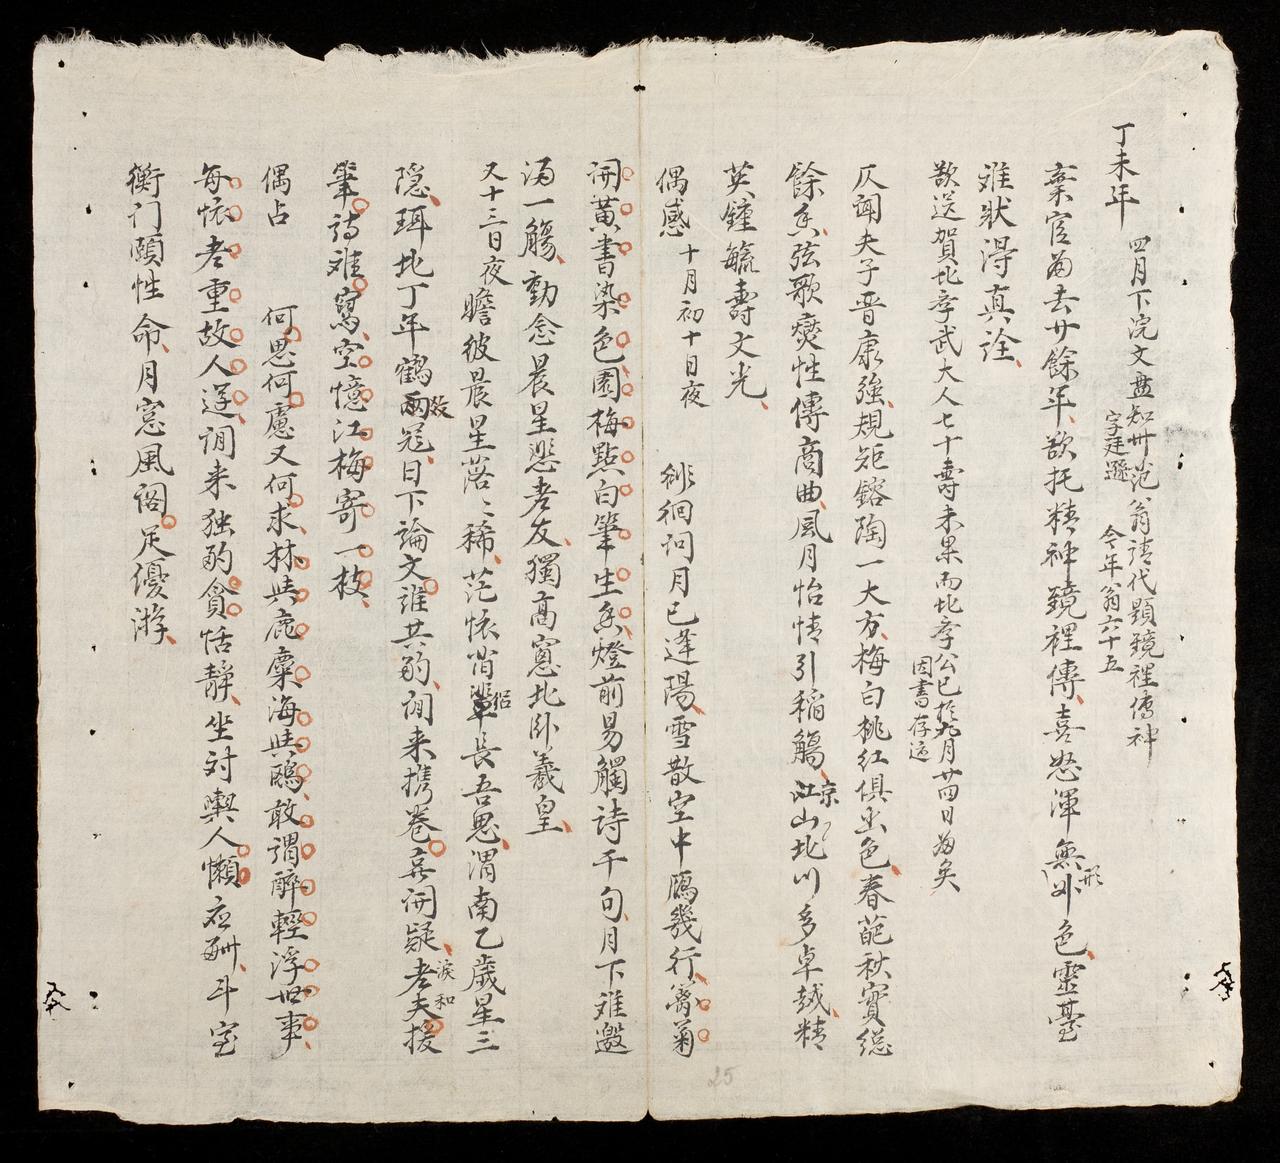 丁未年
四月下浣文盘知州范翁請代題鏡裡傳神
字廷遜
今年翁六十五
棄官為去廿餘年欲托精神鏡裡傳喜怒渾無形外色靈臺
难狀得真詮
欲送賀北亭武大人七十壽未果而北亭公已於九月廿四日為矣
因書存這
仄闻夫子晋康強規矩鎔陶一大方梅白桃红俱出色春葩秋實総
餘香弦歌爕性傳商曲風月怡情引稲觴京山北川多卓越精
英鍾毓壽文光
偶感
十月初十日夜
徘徊问月已逢陽雪散空中鴈幾行篱菊
闲黄書染色園梅點白筆生香燈前易觸詩千句月下难邀
酒一觴動念晨星悲老友獨高窓北卧羲皇
又十三日夜
瞻彼晨星落〻稀茫怀肖侣長吾思渭南乙歲星三
隐珥北丁年鶴兩飛日下論文誰共酌闲来携卷喜闲疑老夫援
淚和
筆詩难寫空憶江梅寄一枝
偶占
何思何慮又何求林與鹿麋海與鷗敢謂醉輕浮世事
每怀老重故人逰闲来独酌貪恬静坐対輿人懶应酬斗室
衡门頤性命月窓風阁足優游
25